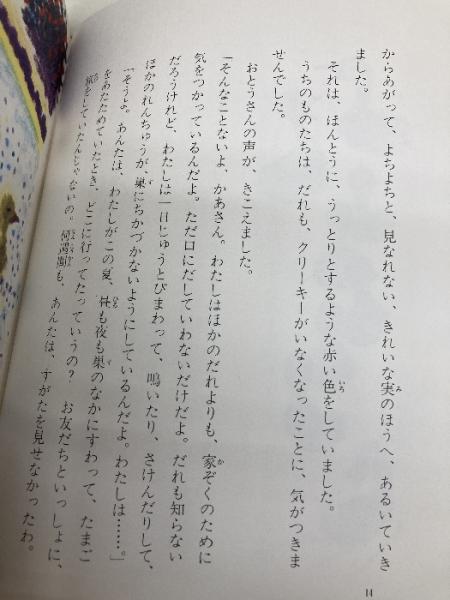 からあがって、よちよちと、見なれない、きれいな実のほうへ、あるいていき
ました。
それは、ほんとうに、うっとりとするような赤い色をしていました。
うちのものたちは、だれも、クリーキーがいなくなったことに、気がつきま
せんでした。
おとうさんの声が、きこえました。
「そんなことないよ、かあさん。わたしはほかのだれよりも、家ぞくのために
気をつかっているんだよ。ただ口にだしていわないだけだよ。だれも知らない
だろうけれど、わたしは一日じゅうとびまわって、鳴いたり、さけんだりして、
ほかのれんちゅうが、巣にちかづかないようにしているんだよ。わたしは……。」
「そうお。あんたは、わたしがこの夏、昼も夜も巣のなかにすわって、たまご
をあたためていたとき、どこに行ってたっていうの? お友だちといっしょに、
をしていたんじゃないの。何週間も、あんたは、すがたを見せなかったわ。
14